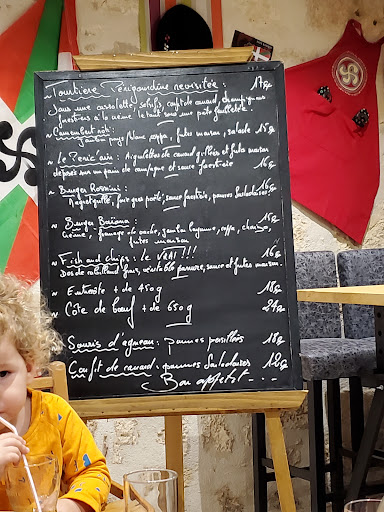 Tourtière Périgourdine revisitée : 17€
Sous une cassolette, salsifis, confit de canard, champignons
forestiers à la crème le tout sous une pâte feuilletée.
~ Camembert rôti :
Jambon pays, frites maison, salade 15€
~ Le Péric'ain : Aiguillettes de canard grillées et frites maison
déposé sur un pain de campagne et sauce forestière 16€
~ Burger Rossini : 16€
Magret grillé, foie gras poêlé, sauce forestière, pommes Salardaises
~ Burger Basque : 15€
crème, fromage de vache, jambon bayonne, chorizo,
frites maison
~ Fish and chips : le vrai !!! 16€
Dos de cabillaud frais, véritable panure, sauce et frites maison.
~ Entrecôte + de 450g 18€
~ Côte de bœuf + de 650g 24€
Souris d'agneau : pommes persillées 18€
Confit de canard : pommes Salardaises 12€
Bon appétit ...